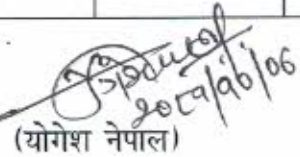 २०८१/१०/०६
(योगेश नेपाल)